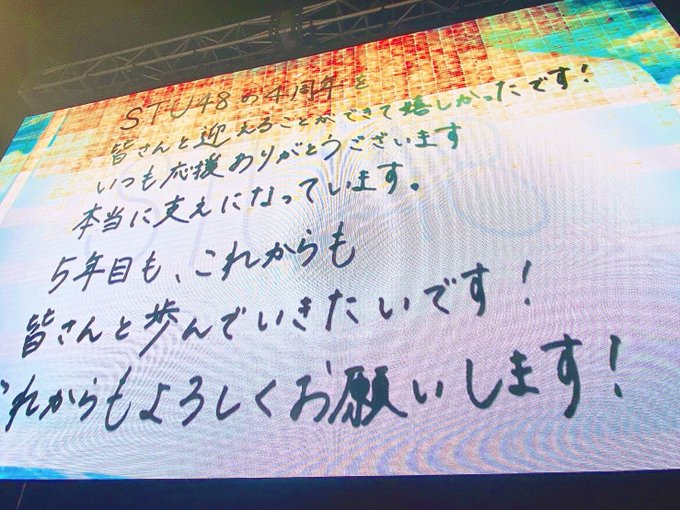 STU48の4周年を
皆さんと迎えることができて嬉しかったです!
いつも応援ありがとうございます
本当に支えになっています。
5年目も、これからも
皆さんと歩んでいきたいです!
これからもよろしくお願いします!